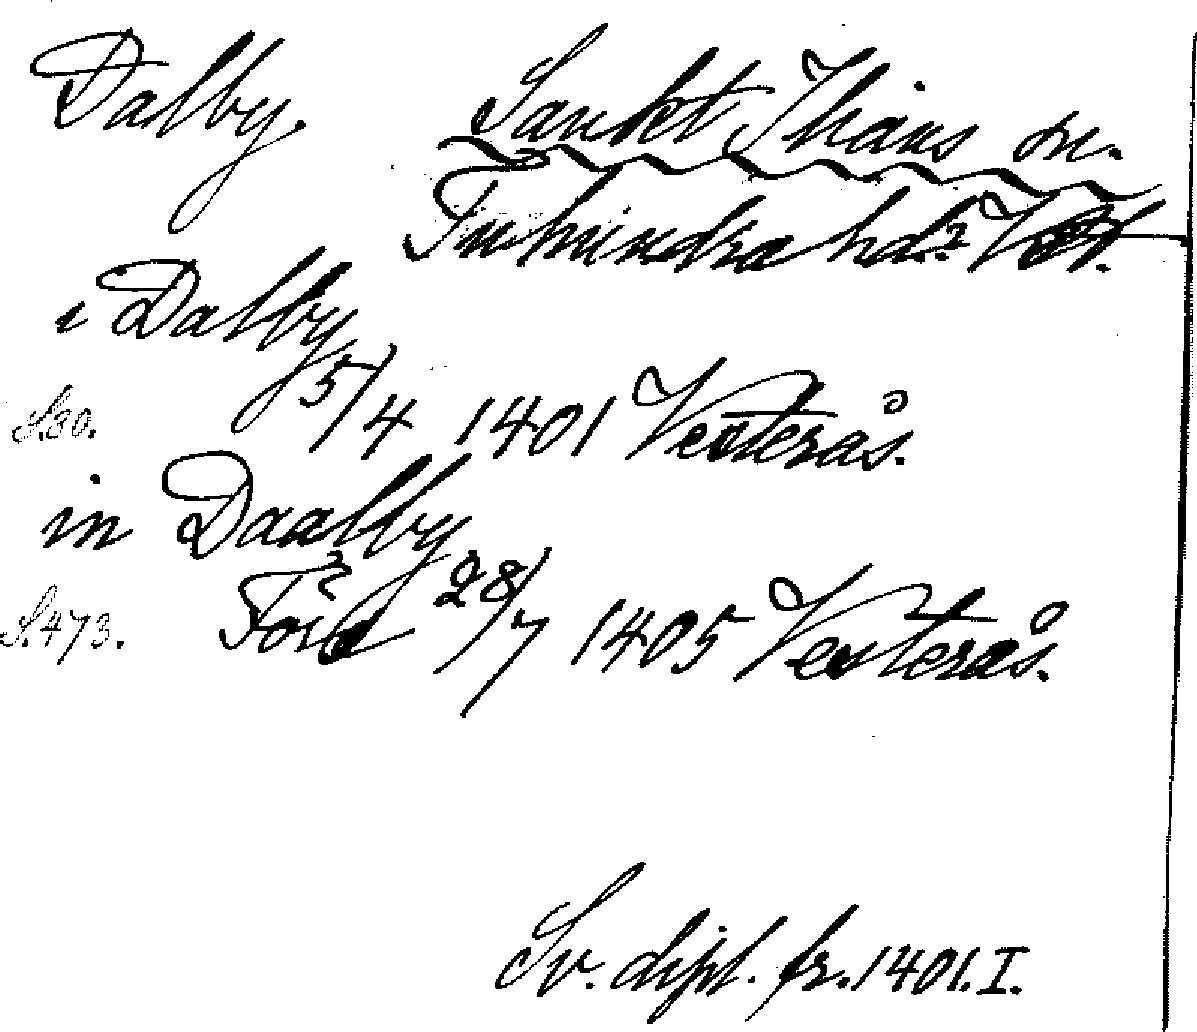 Dalby. Sankt Ihans sn.
Tuhundra hd. Vstl.
i Dalby
S.30. 5/4 1401 Vesterås.
in Daalby
S.473. 28/7 1405 Vesterås.
Sv. dipl. fr. 1401. I.